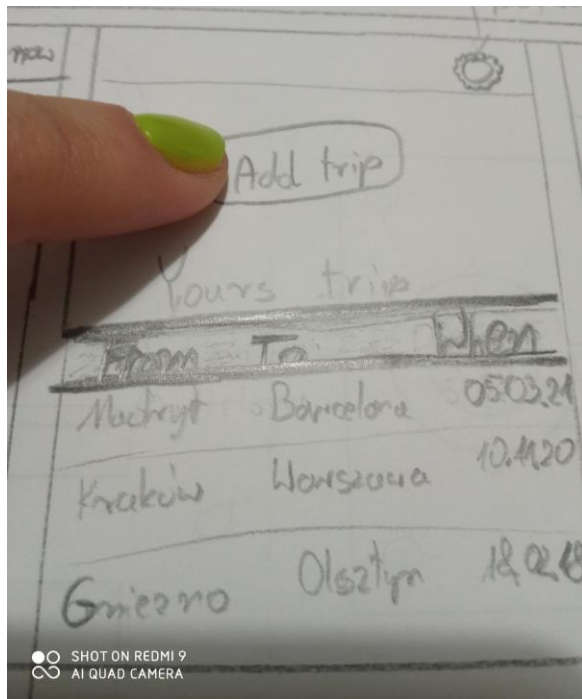 Add trip
Yours trip
From To When
Madryt Barcelona 05.03.21
Kraków Warszawa 10.11.20
Gniezno Olsztyn 18.02.18
SHOT ON REDMI 9
AI QUAD CAMERA